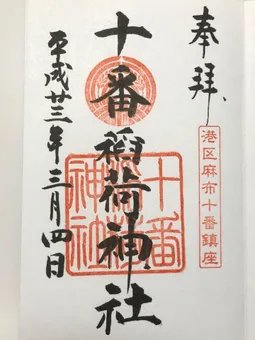 奉拝
港区麻布十番鎮座
十番稲荷神社
十番
神社
平成廿三年三月四日